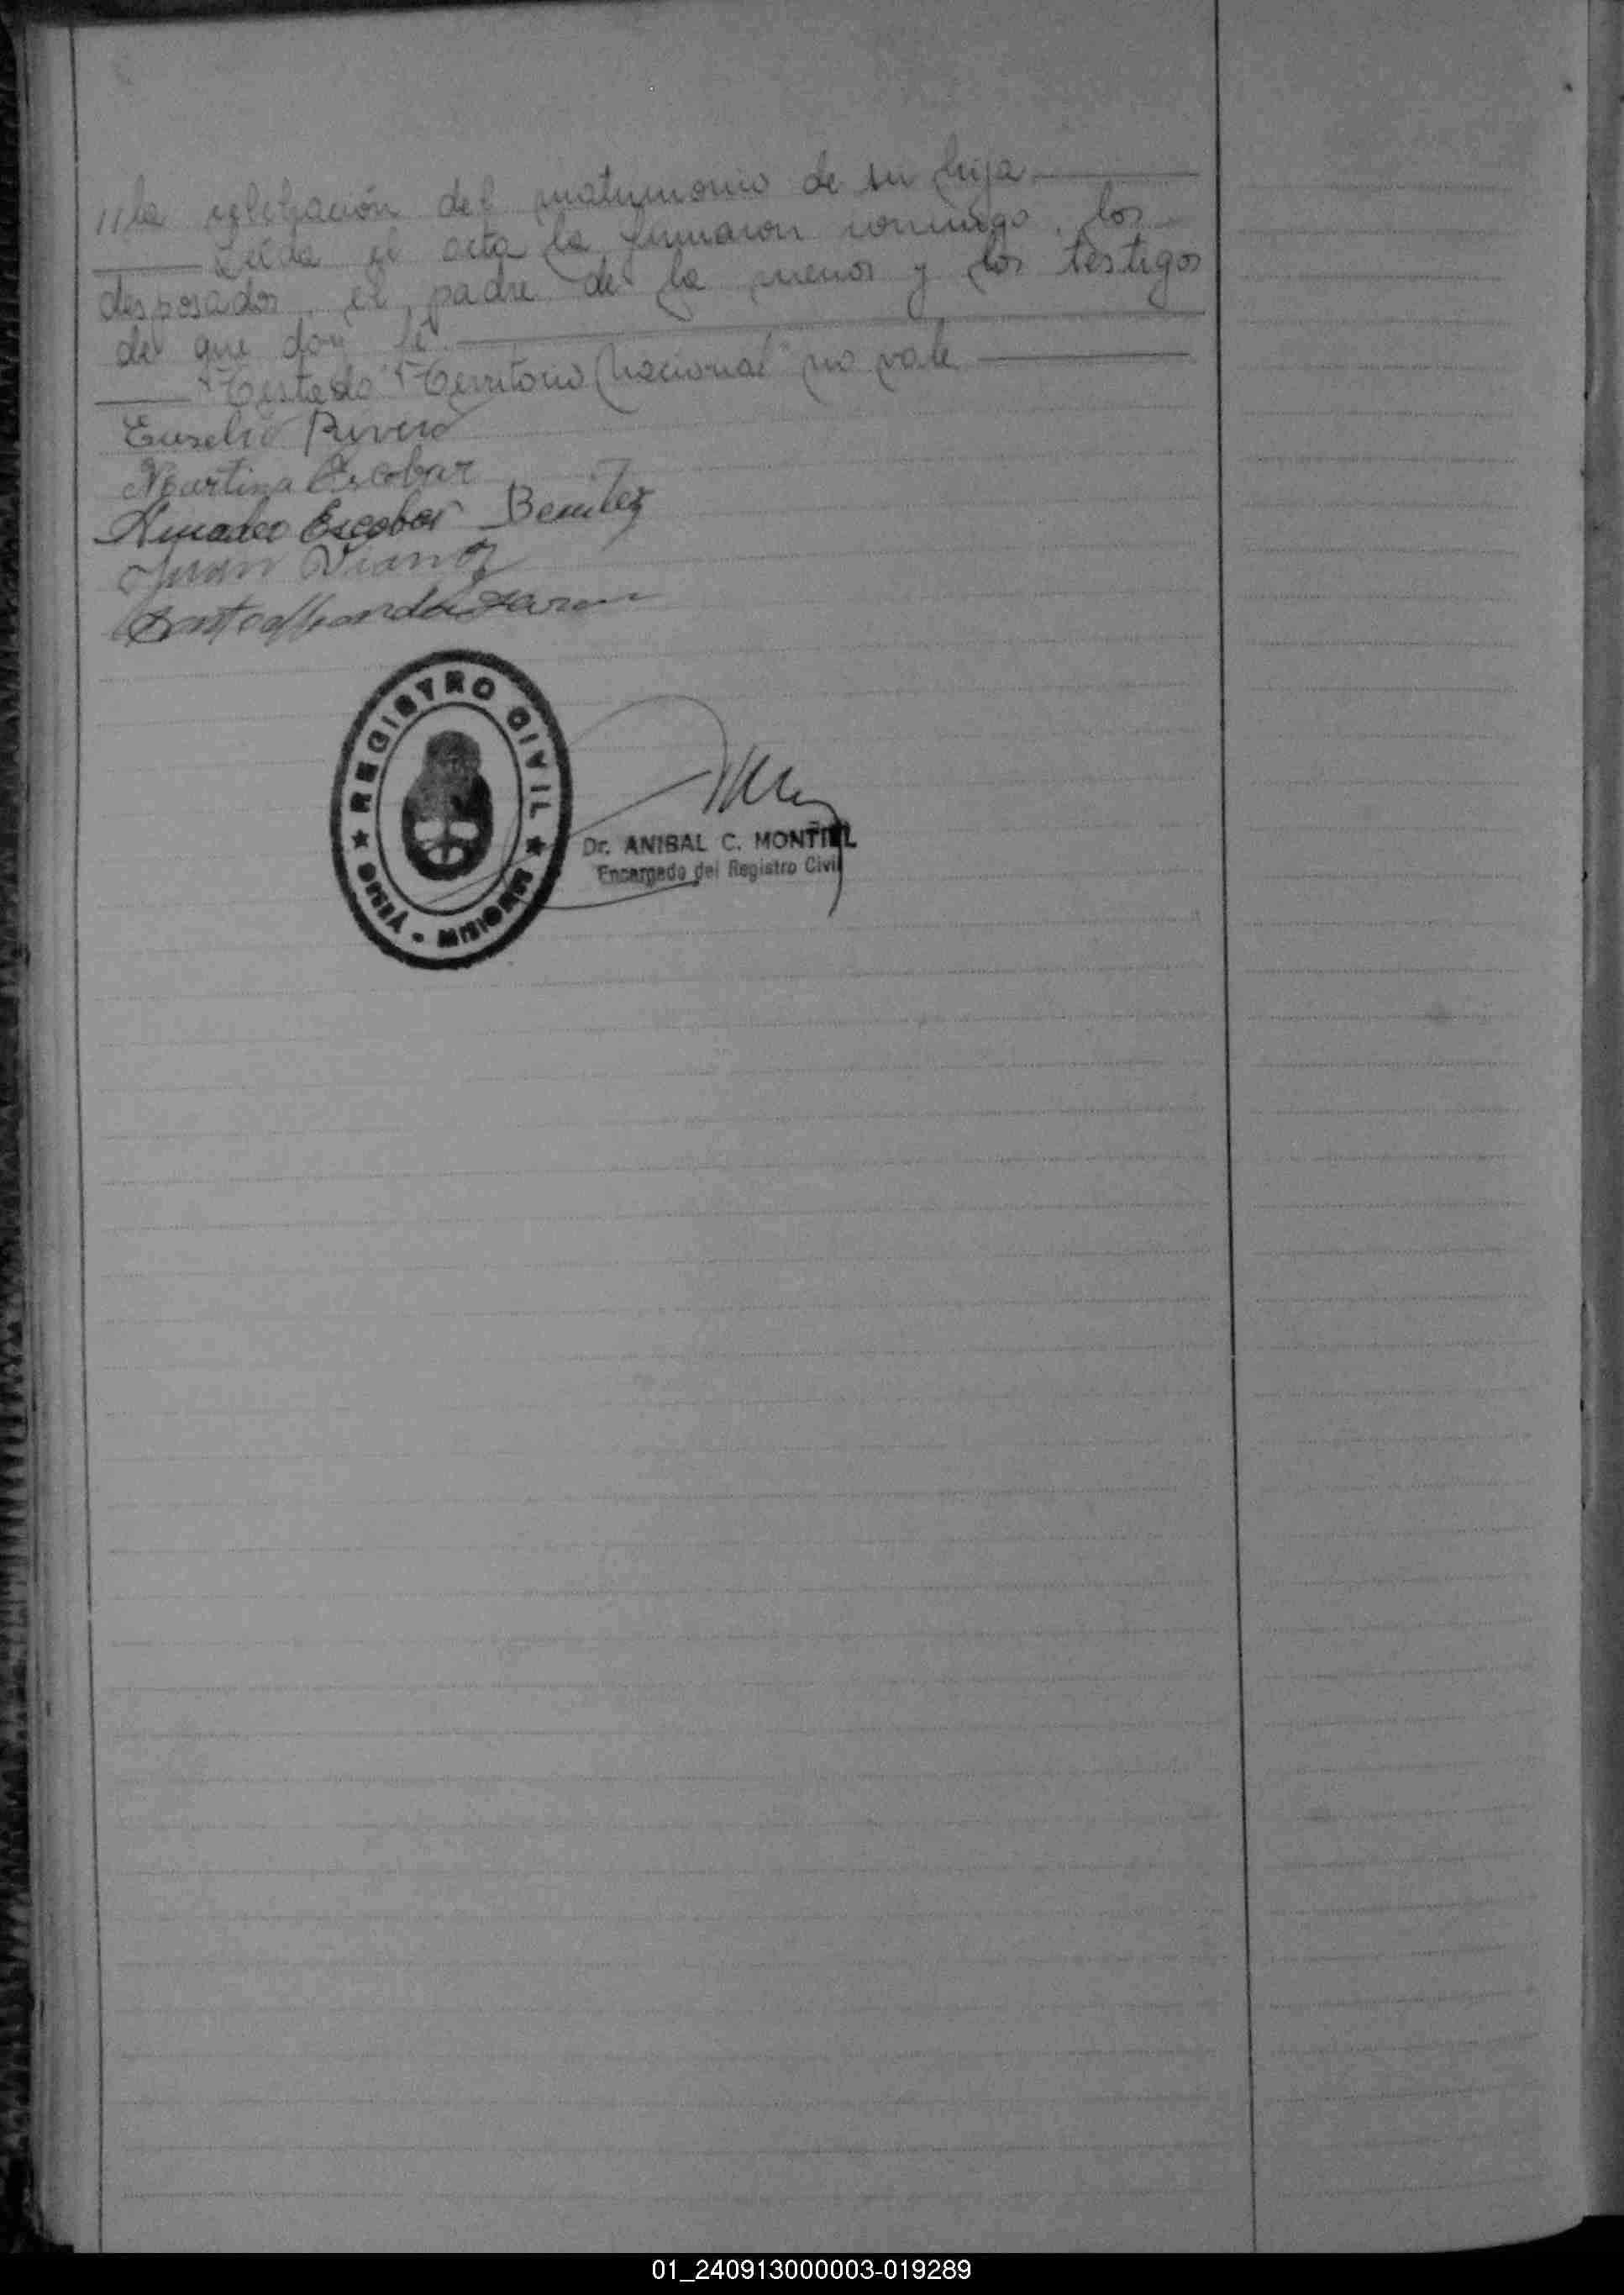 //la celebración del matrimonio de su hija
Leída el acta la firmaron conmigo, los
desposados, el padre de la menor y los testigos
de que doy fé.
Testado "Territorio Nacional" no vale
Eusebio Rivero
Martina Escobar
Amadeo Escobar Benitez
Juan
REGISTRO CIVIL
MISIONES
Dr. ANIBAL C. MONTIEL
Encargado del Registro Civil
01_240913000003-019289